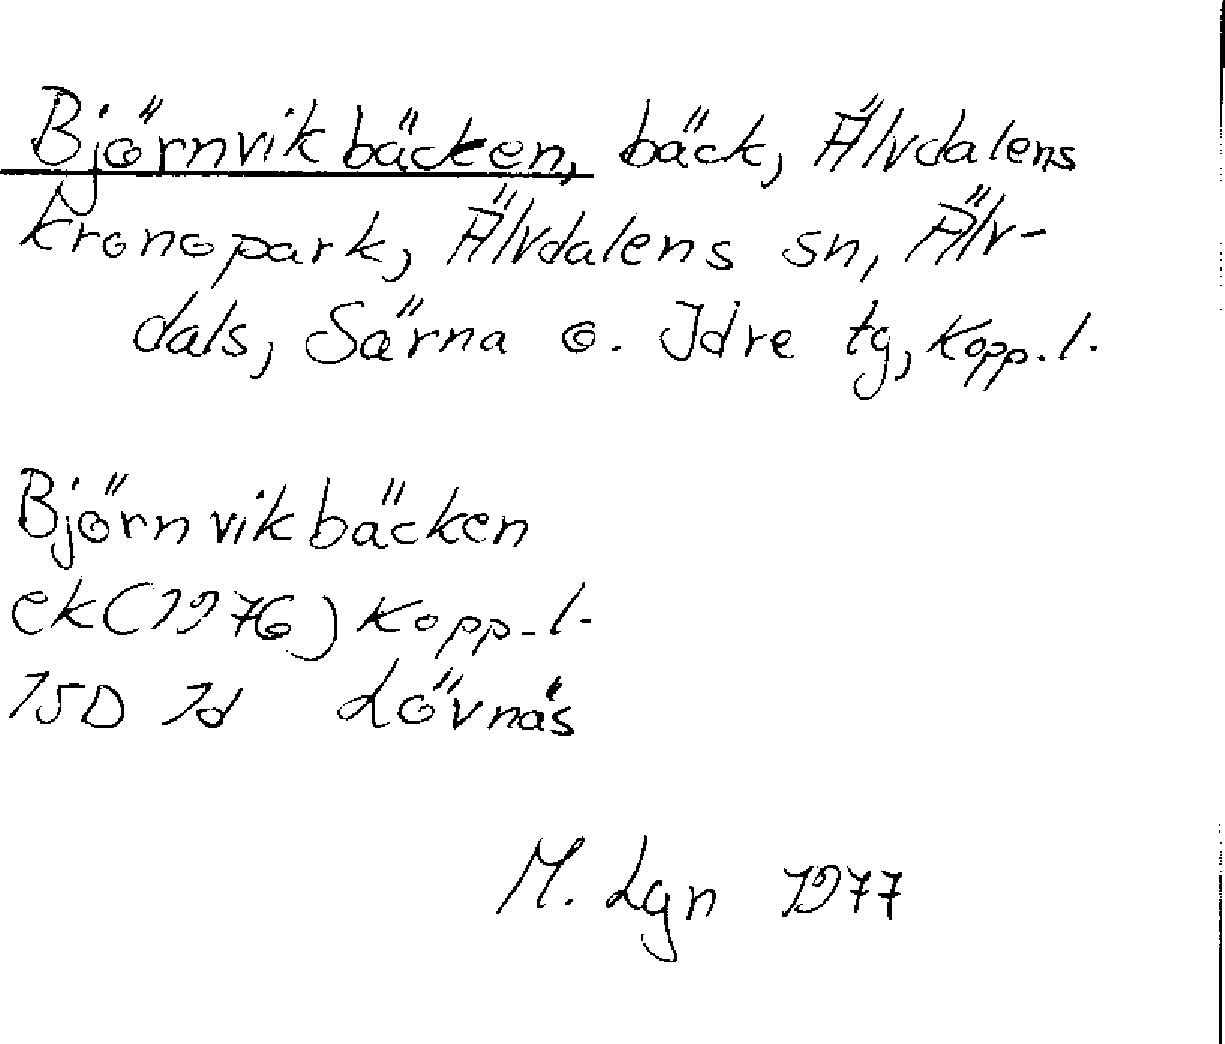 Björnvikbäcken, bäck, Älvdalens
kronopark, Älvdalens sn, Älv-
dals, Särna o. Idre tg, Kopp. l.
Björnvikbäcken
ek (1976) Kopp. l.
15D 1d Lövnäs
M. Lgn 1977